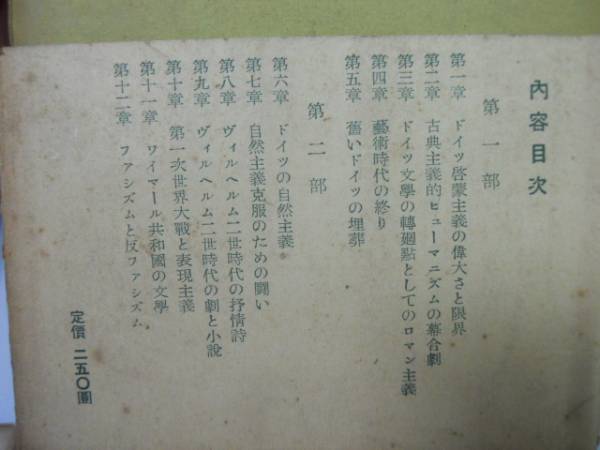 內容目次
第一部
第一章 ドイツ啓蒙主義の偉大さと限界
第二章 古典主義的ヒューマニズムの幕合劇
第三章 ドイツ文學の轉廻點としてのロマン主義
第四章 藝術時代の終り
第五章 舊いドイツの埋葬
第二部
第六章 ドイツの自然主義
第七章 自然主義克服のための鬪い
第八章 ヴィルヘルム二世時代の抒情詩
第九章 ヴィルヘルム二世時代の劇と小說
第十章 第一次世界大戰と表現主義
第十一章 ワイマール共和國の文學
第十二章 ファシズムと反ファシズム
定價 二五〇圓